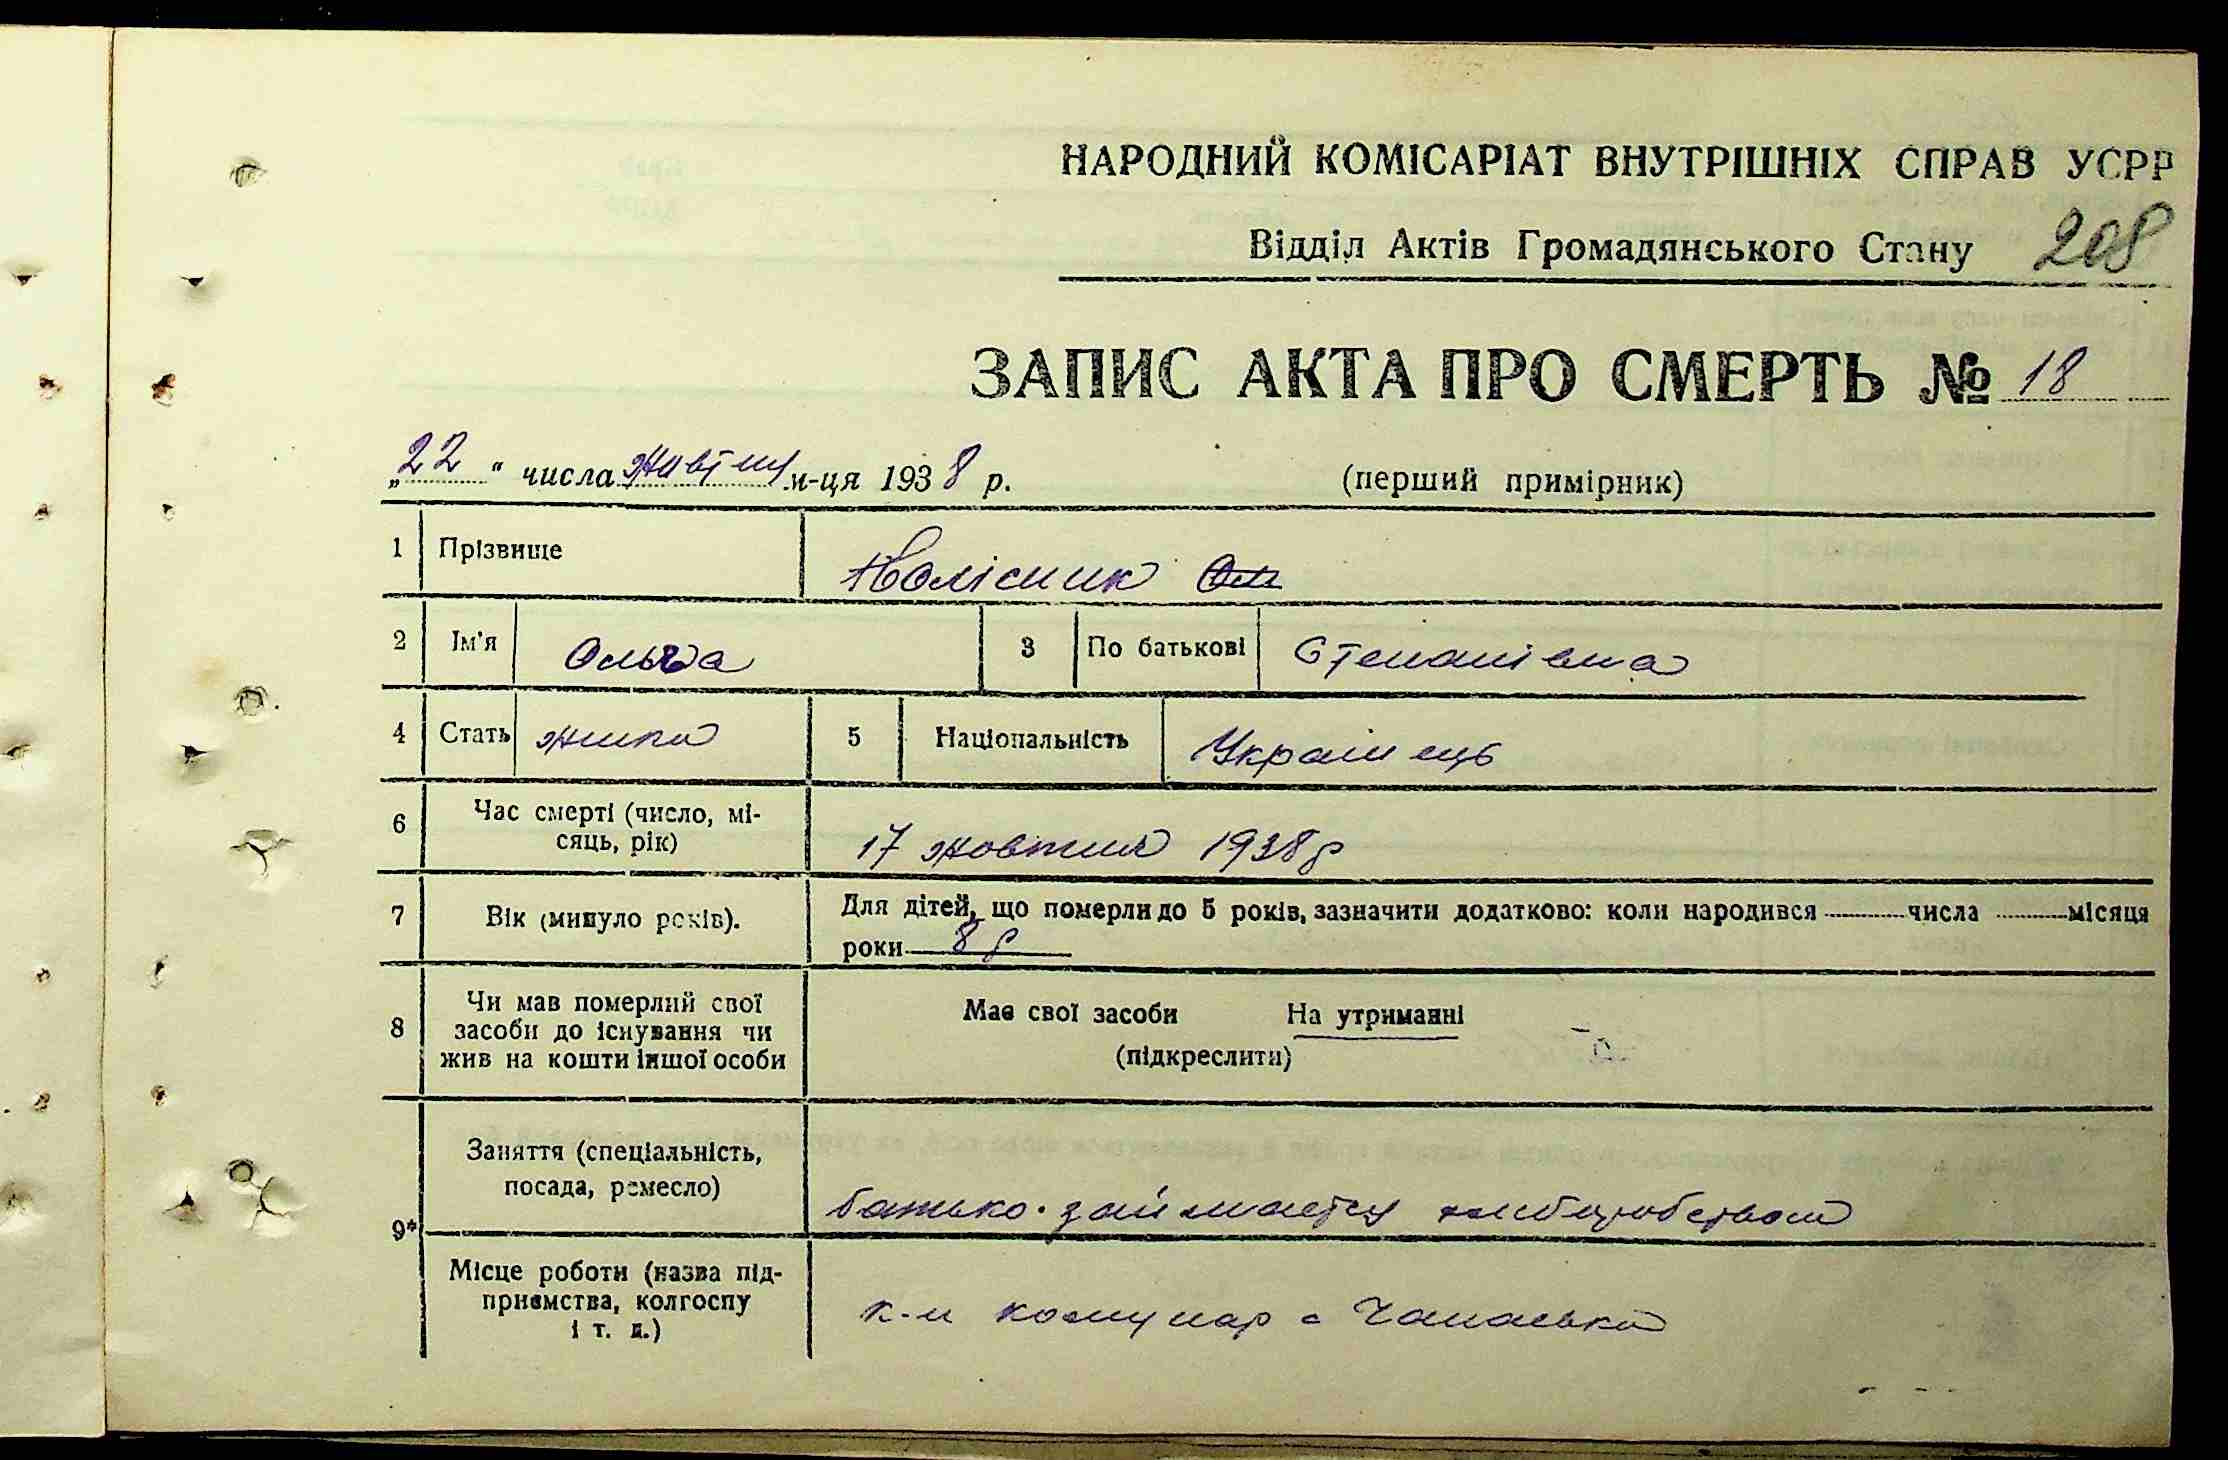 НАРОДНИЙ КОМІСАРІАТ ВНУТРІШНІХ СПРАВ УСРР
Відділ Актів Громадянського Стану 208
ЗАПИС АКТА ПРО СМЕРТЬ № 18
„22“ числа жовтня м-ця 1938 р. (перший примірник)
1 Прізвище
2 Ім'я Ольга 3 По батькові Степанівна
4 Стать жінка 5 Національність Українець
6 Час смерті (число, мі-
сяць, рік) 17 жовтня 1938 р
7 Вік (минуло років). Для дітей, що померли до 5 років, зазначити додатково: коли народився числа місяця
роки 8 р
8 Чи мав померлий свої
засоби до існування чи
жив на кошти іншої особи
Має свої засоби На утриманні
(підкреслити)
9* Заняття (спеціальність,
посада, ремесло) батько займается хлеборобством
Місце роботи (назва під-
приємства, колгоспу
і т. д.) к-п комунар с